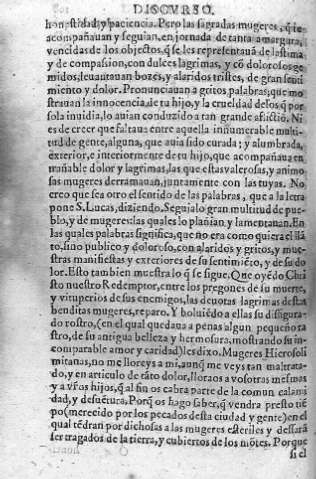 DISCVRSO.
honestidad, y paciencia. Pero las sagradas mugeres, q̃ te
acompañauan y seguian, en jornada de tanta amargura,
vencidas de los objectos, q̃ se les representauã de lastima
y de compasion, con dulces lagrimas, y cõ dolorosos ge
midos, leuantauan bozes, y alaridos tristes, de gran senti
miento y dolor. Pronunciauan a gritos, palabras, que mo
strauan la innocencia, de tu hijo, y la crueldad de los q̃ por
sola inuidia, lo auian conduzido a tan grande aflictiõ. Ni
es de creer que faltaua entre aquella innumerable multi-
tud de gente, alguna, que auia sido curada; y alumbrada,
exterior, e interiormente de tu hijo, que acompañaua en
trañable dolor y lagrimas, las que estas valerosas, y animo
sas mugeres derramauan, juntamente con las tuyas. No
creo que sea otro el sentido de las palabras, que a la letra
pone S. Lucas, diziendo. Seguialo gran multitud de pue-
blo, y de mugeres: las quales lo plañian y lamentauan. En
las quales palabras significa, que no era como quiera el llã
to, sino publico y doloroso, con alaridos y gritos, y mue-
stras manifiestas y exteriores de su sentimiẽto, y de su do
lor. Esto tambien muestra lo q̃ se sigue. Que oyẽdo Chri
sto nuestro Redemptor, entre los pregones de su muerte,
y vituperios de sus enemigos, las deuotas lagrimas destas
benditas mugeres, reparo. Y boluiẽdo a ellas su disfigura-
do rostro, (en el qual quedaua a penas algun pequeño ra
stro, de su antigua belleza y hermosura, mostrando su in-
comparable amor y caridad) les dixo. Mugeres Hierosoli
mitanas, no me lloreys a mi, aunq̃ me veys tan maltrata-
do, y en articulo de tãto dolor, lloraos a vosotras mesmas
y a vr̃os hijos, q̃ al fin os cabra parte de la comun calami
dad, y desuẽtura, Porq̃ os hago saber, q̃ vendra presto tiẽ
po (merecido por los pecados desta ciudad y gente) en el
qual tẽdran por dichosas a las mugeres esteriles y dessarã
ser tragados de la tierra, y cubiertos de los mõtes. Porque
si el